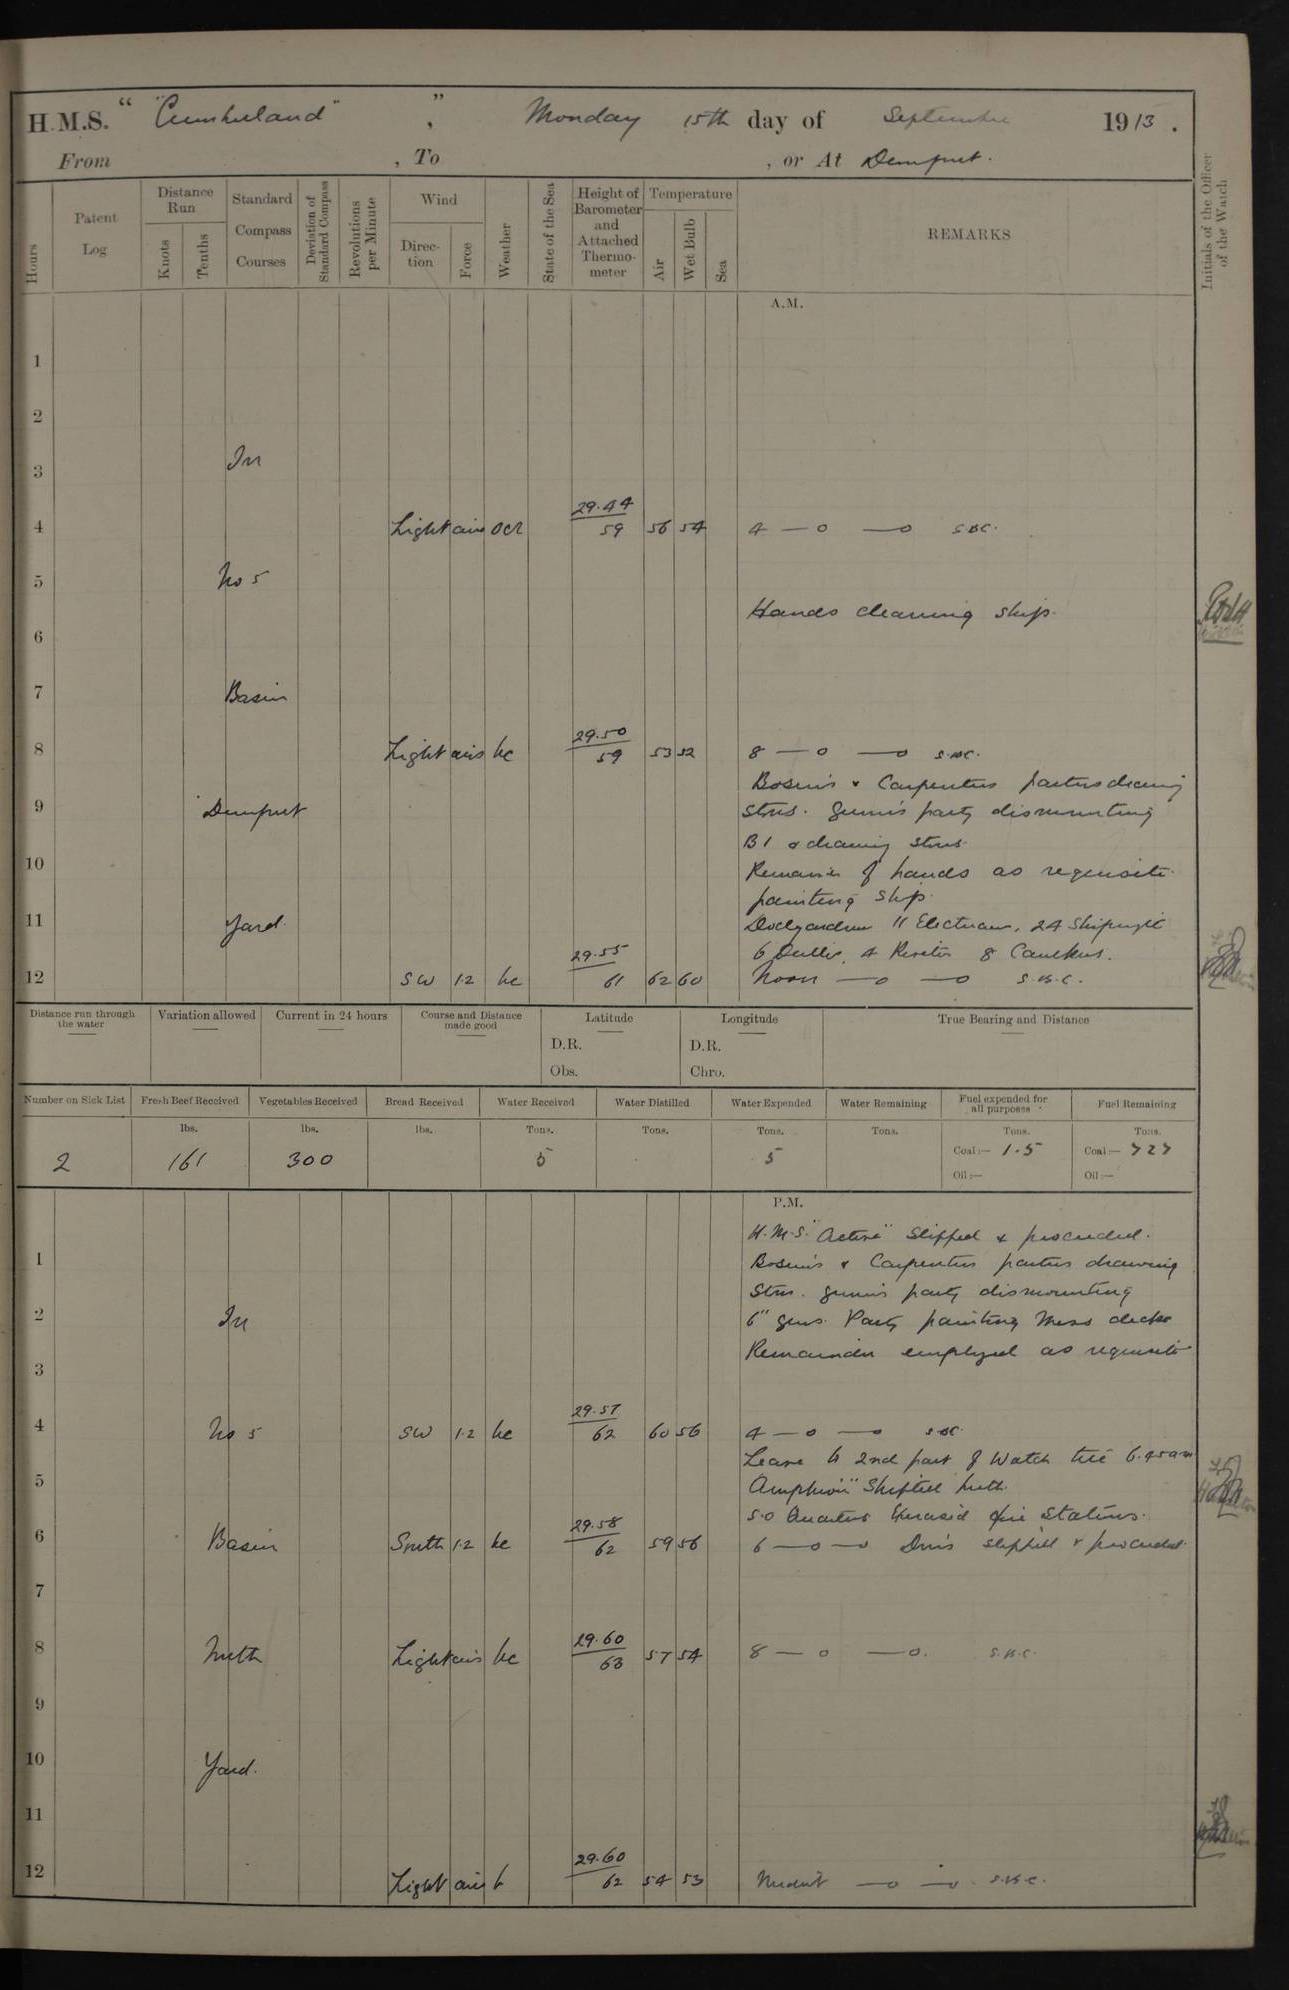 H.M.S. “ "Cumberland" ” , Monday 15th day of September 1913 .
From , To , or At Devonport.
Hours
Patent Log
Distance Run
Knots
Tenths
Standard Compass Courses
Deviation of Standard Compass
Revolutions per Minute
Wind
Direc-tion
Force
Weather
State of the Sea
Height of Barometer and Attached Thermo-meter
Temperature
Air
Wet Bulb
Sea
REMARKS
Initials of the Officer of the Watch
A.M.
1
2
3 In
4 Light airs ocr 29.44 59 56 54 4 — o — o s.b.c.
5 No 5
Hands cleaning ship.
6
7 Basin
8 Light airs bc 29.50 59 53 52 8 — o — o s.b.c.
Bosun's & Carpenters parties drawing
9 Devonport stores. Gunner's party dismounting
B1 & drawing stores.
10 Remainder of hands as requisite
painting ship.
11 Yard. Dockyardmen 11 Electricians, 24 Shipwrights
6 Drillers, 4 Riveters 8 Caulkers.
12 SW 1.2 bc 29.55 61 62 60 Noon — o — o s.b.c.
Distance run through the water
Variation allowed
Current in 24 hours
Course and Distance made good
Latitude
D.R.
Obs.
Longitude
D.R.
Chro.
True Bearing and Distance
Number on Sick List
Fresh Beef Received
Vegetables Received
Bread Received
Water Received
Water Distilled
Water Expended
Water Remaining
Fuel expended for all purposes
Fuel Remaining
lbs. lbs. lbs. Tons. Tons. Tons. Tons. Tons. Tons.
2 161 300 5 5 Coal:— 1.5 Coal:— 727
Oil:— Oil:—
P.M.
H.M.S. "Active" slipped & proceeded.
1 Bosun's & Carpenters parties drawing
stores. Gunner's party dismounting
2 In 6" guns. Party painting Mess decks
Remainder employed as requisite
3
4 No 5 SW 1.2 bc 29.57 62 60 56 4 — o — o s.b.c.
Leave to 2nd part of Watch till 6.45 am
5 "Amphion" Shifted berth.
5.0 Quarters Exercised fire Stations.
6 Basin South 1.2 bc 29.58 62 59 56 6 — o — o slipped & proceeded.
7
8 North Light airs bc 29.60 63 57 54 8 — o — o. s.b.c.
9
10 Yard.
11
12 Light airs b 29.60 62 54 53 Midnt — o — o. s.b.c.